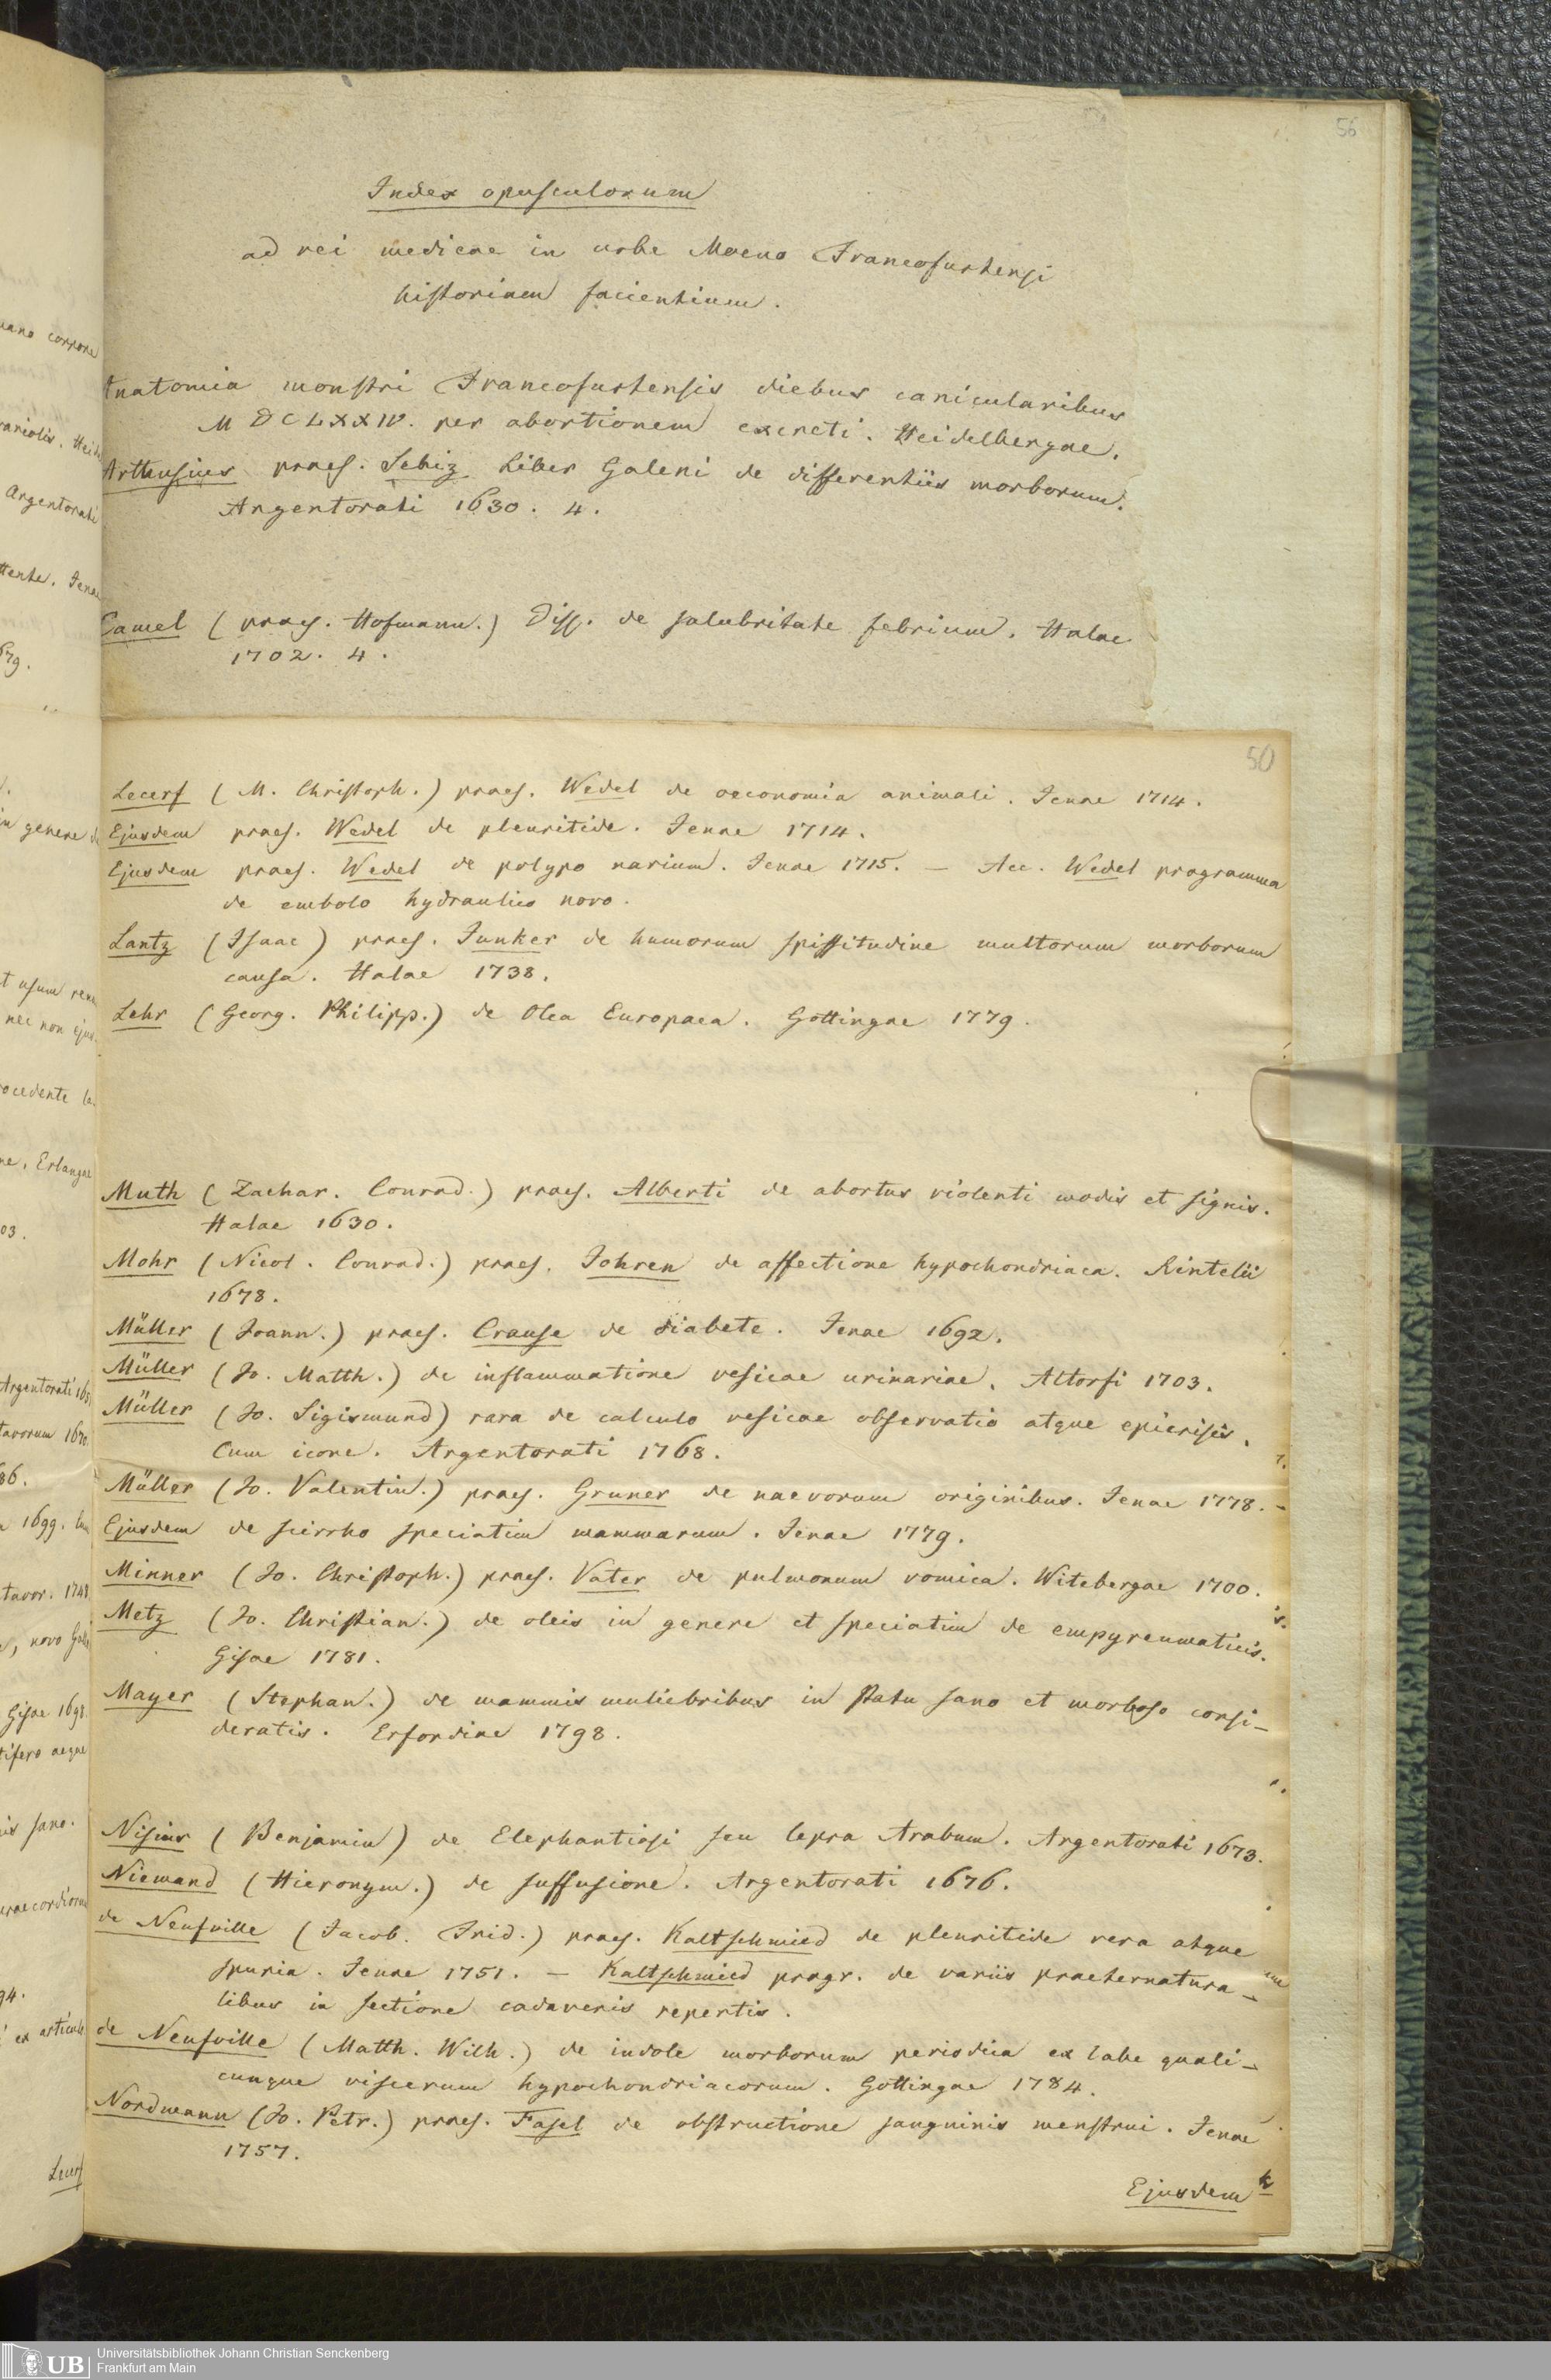 56
Index opusculorum
ad rei medicae in urbe Moeno Francofurtensi
historiam facientium.
Anatomia monstri Francofurtensis diebus canicularibus
MDCLXXIV. per abortionem excreti. Heidelbergae.
Arthusius praes. Sebiz Liber Galeni de differentiis morborum.
Argentorati 1630. 4.
Camel (praes. Hofmann.) Diss. de salubritate febrium. Halae
1702. 4.
50
Lecerf (M. Christoph.) praes. Wedel de oeconomia animali. Jenae 1714.
Ejusdem praes. Wedel de pleuritide. Jenae 1714.
Ejusdem praes. Wedel de polypo narium. Jenae 1715. — Acc. Wedel programma
de embolo hydraulico novo.
Lantz (Isaac) praes. Junker de humorum spissitudine multorum morborum
causa. Halae 1738.
Lehr (Georg. Philipp.) de Olea Europaea. Gottingae 1779.
Muth (Zachar. Conrad.) praes. Alberti de abortus violenti modis et signis.
Halae 1630.
Mohr (Nicol. Conrad.) praes. Johren de affectione hypochondriaca. Rintelii
1678.
Müller (Joann.) praes. Crause de diabete. Jenae 1692.
Müller (Jo. Matth.) de inflammatione vesicae urinariae. Altorfi 1703.
Müller (Jo. Sigismund) rara de calculo vesicae observatio atque epicrisis.
Cum icone. Argentorati 1768.
Müller (Jo. Valentin.) praes. Gruner de naevorum originibus. Jenae 1778. -
Ejusdem de scirrho speciatim mammarum. Jenae 1779.
Minner (Jo. Christoph.) praes. Vater de pulmonum vomica. Witebergae 1700.
Metz (Jo. Christian.) de oleis in genere et speciatim de empyreumaticis.
Gisae 1781.
Mayer (Stephan.) de mammis muliebribus in statu sano et morboso consi-
deratis. Erfordiae 1798.
Nisius (Benjamin) de Elephantiasi seu lepra Arabum. Argentorati 1673.
Niemand (Hieronym.) de suffusione. Argentorati 1676.
de Neufville (Jacob. Frid.) praes. Kaltschmied de pleuritide vera atque
spuria. Jenae 1751. — Kaltschmied progr. de variis praeternatura-
libus in sectione cadaveris repertis.
de Neufville (Matth. Wilh.) de indole morborum periodica ex labe quali-
cunque viscerum hypochondriacorum. Gottingae 1784.
Nordmann (Jo. Petr.) praes. Fasel de obstructione sanguinis menstrui. Jenae
1757.
Ejusdem
UB
Universitätsbibliothek Johann Christian Senckenberg
Frankfurt am Main